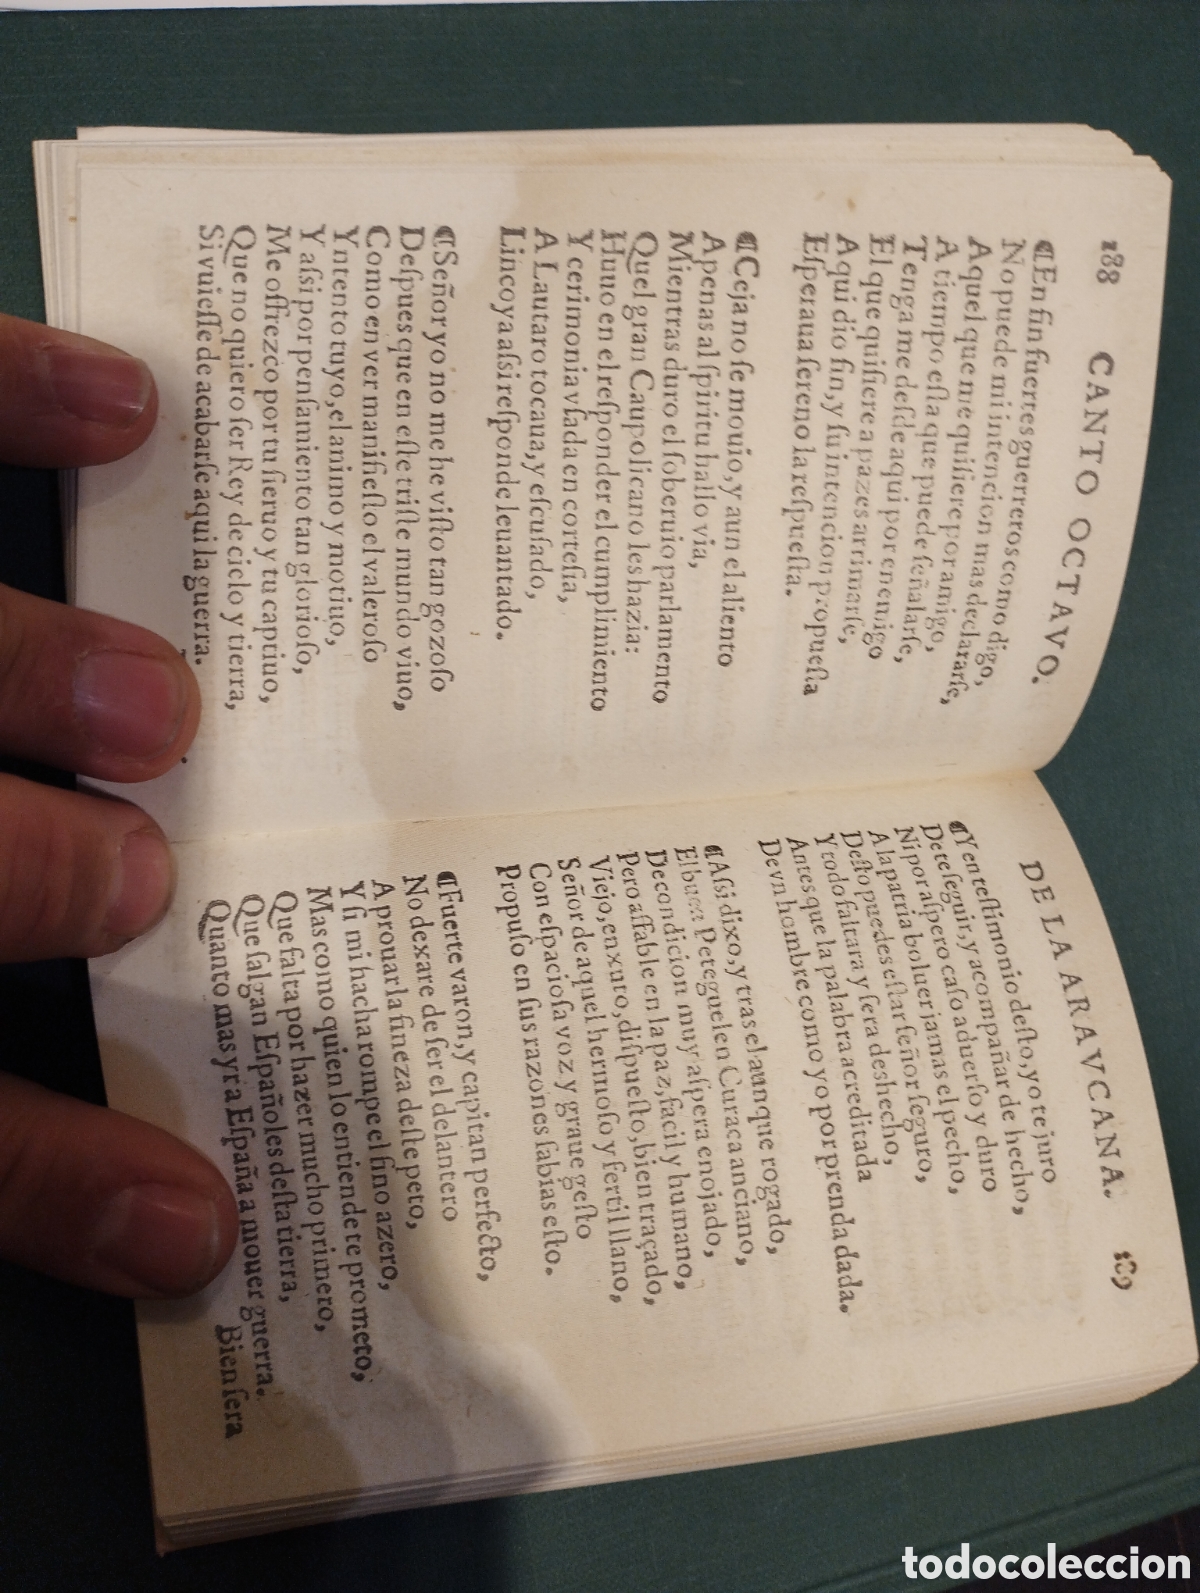 188 CANTO OCTAVO.
¶En fin fuertes guerreros como digo,
No puede mi intencion mas declararſe,
Aquel que me quiſiere por amigo,
A tiempo eſta que puede ſeñalarſe,
Tenga me deſde aqui por enemigo
El que quiſiere a pazes arrimarſe,
Aqui dio fin, y ſu intencion propueſta
Eſperaua ſereno la reſpueſta.
¶Ceja no ſe mouio, y aun el aliento
Apenas al ſpiritu hallo via,
Mientras duro el ſoberuio parlamento
Quel gran Caupolicano les hazia:
Huuo en el reſponder el cumplimiento
Y cerimonia vſada en corteſia,
A Lautaro tocaua, y eſcuſado,
Lincoya aſsi reſponde leuantado.
¶Señor yo no me he viſto tan gozoſo
Deſpues que en eſte triſte mundo viuo,
Como en ver manifieſto el valeroſo
Yntento tuyo, el animo y motiuo,
Y aſsi por penſamiento tan glorioſo,
Me offrezco por tu ſieruo y tu captiuo,
Que no quiero ſer Rey de cielo y tierra,
Si vuieſſe de acabarſe aqui la guerra.
DE LA ARAVCANA. 189
¶Y en teſtimonio deſto, yo te juro
De te ſeguir, y acompañar de hecho,
Ni por aſpero caſo aduerſo y duro
A la patria boluer jamas el pecho,
Deſto puedes eſtar ſeñor ſeguro,
Y todo faltara y ſera deshecho,
Antes que la palabra acreditada
De vn hombre como yo por prenda dada.
¶Aſsi dixo, y tras el aunque rogado,
El buen Peteguelen Curaca anciano,
De condicion muy aſpera enojado,
Pero affable en la paz, facil y humano,
Viejo, enxuto, diſpueſto, bien traçado,
Señor de aquel hermoſo y fertil llano,
Con eſpacioſa voz y graue geſto
Propuſo en ſus razones ſabias eſto.
¶Fuerte varon, y capitan perfecto,
No dexare de ſer el delantero
A prouar la fineza deſte peto,
Y ſi mi hacha rompe el fino azero,
Mas como quien lo entiende te prometo,
Que falta por hazer mucho primero,
Que ſalgan Eſpañoles deſta tierra,
Quanto mas yr a Eſpaña a mouer guerra.
Bien ſera
todocoleccion